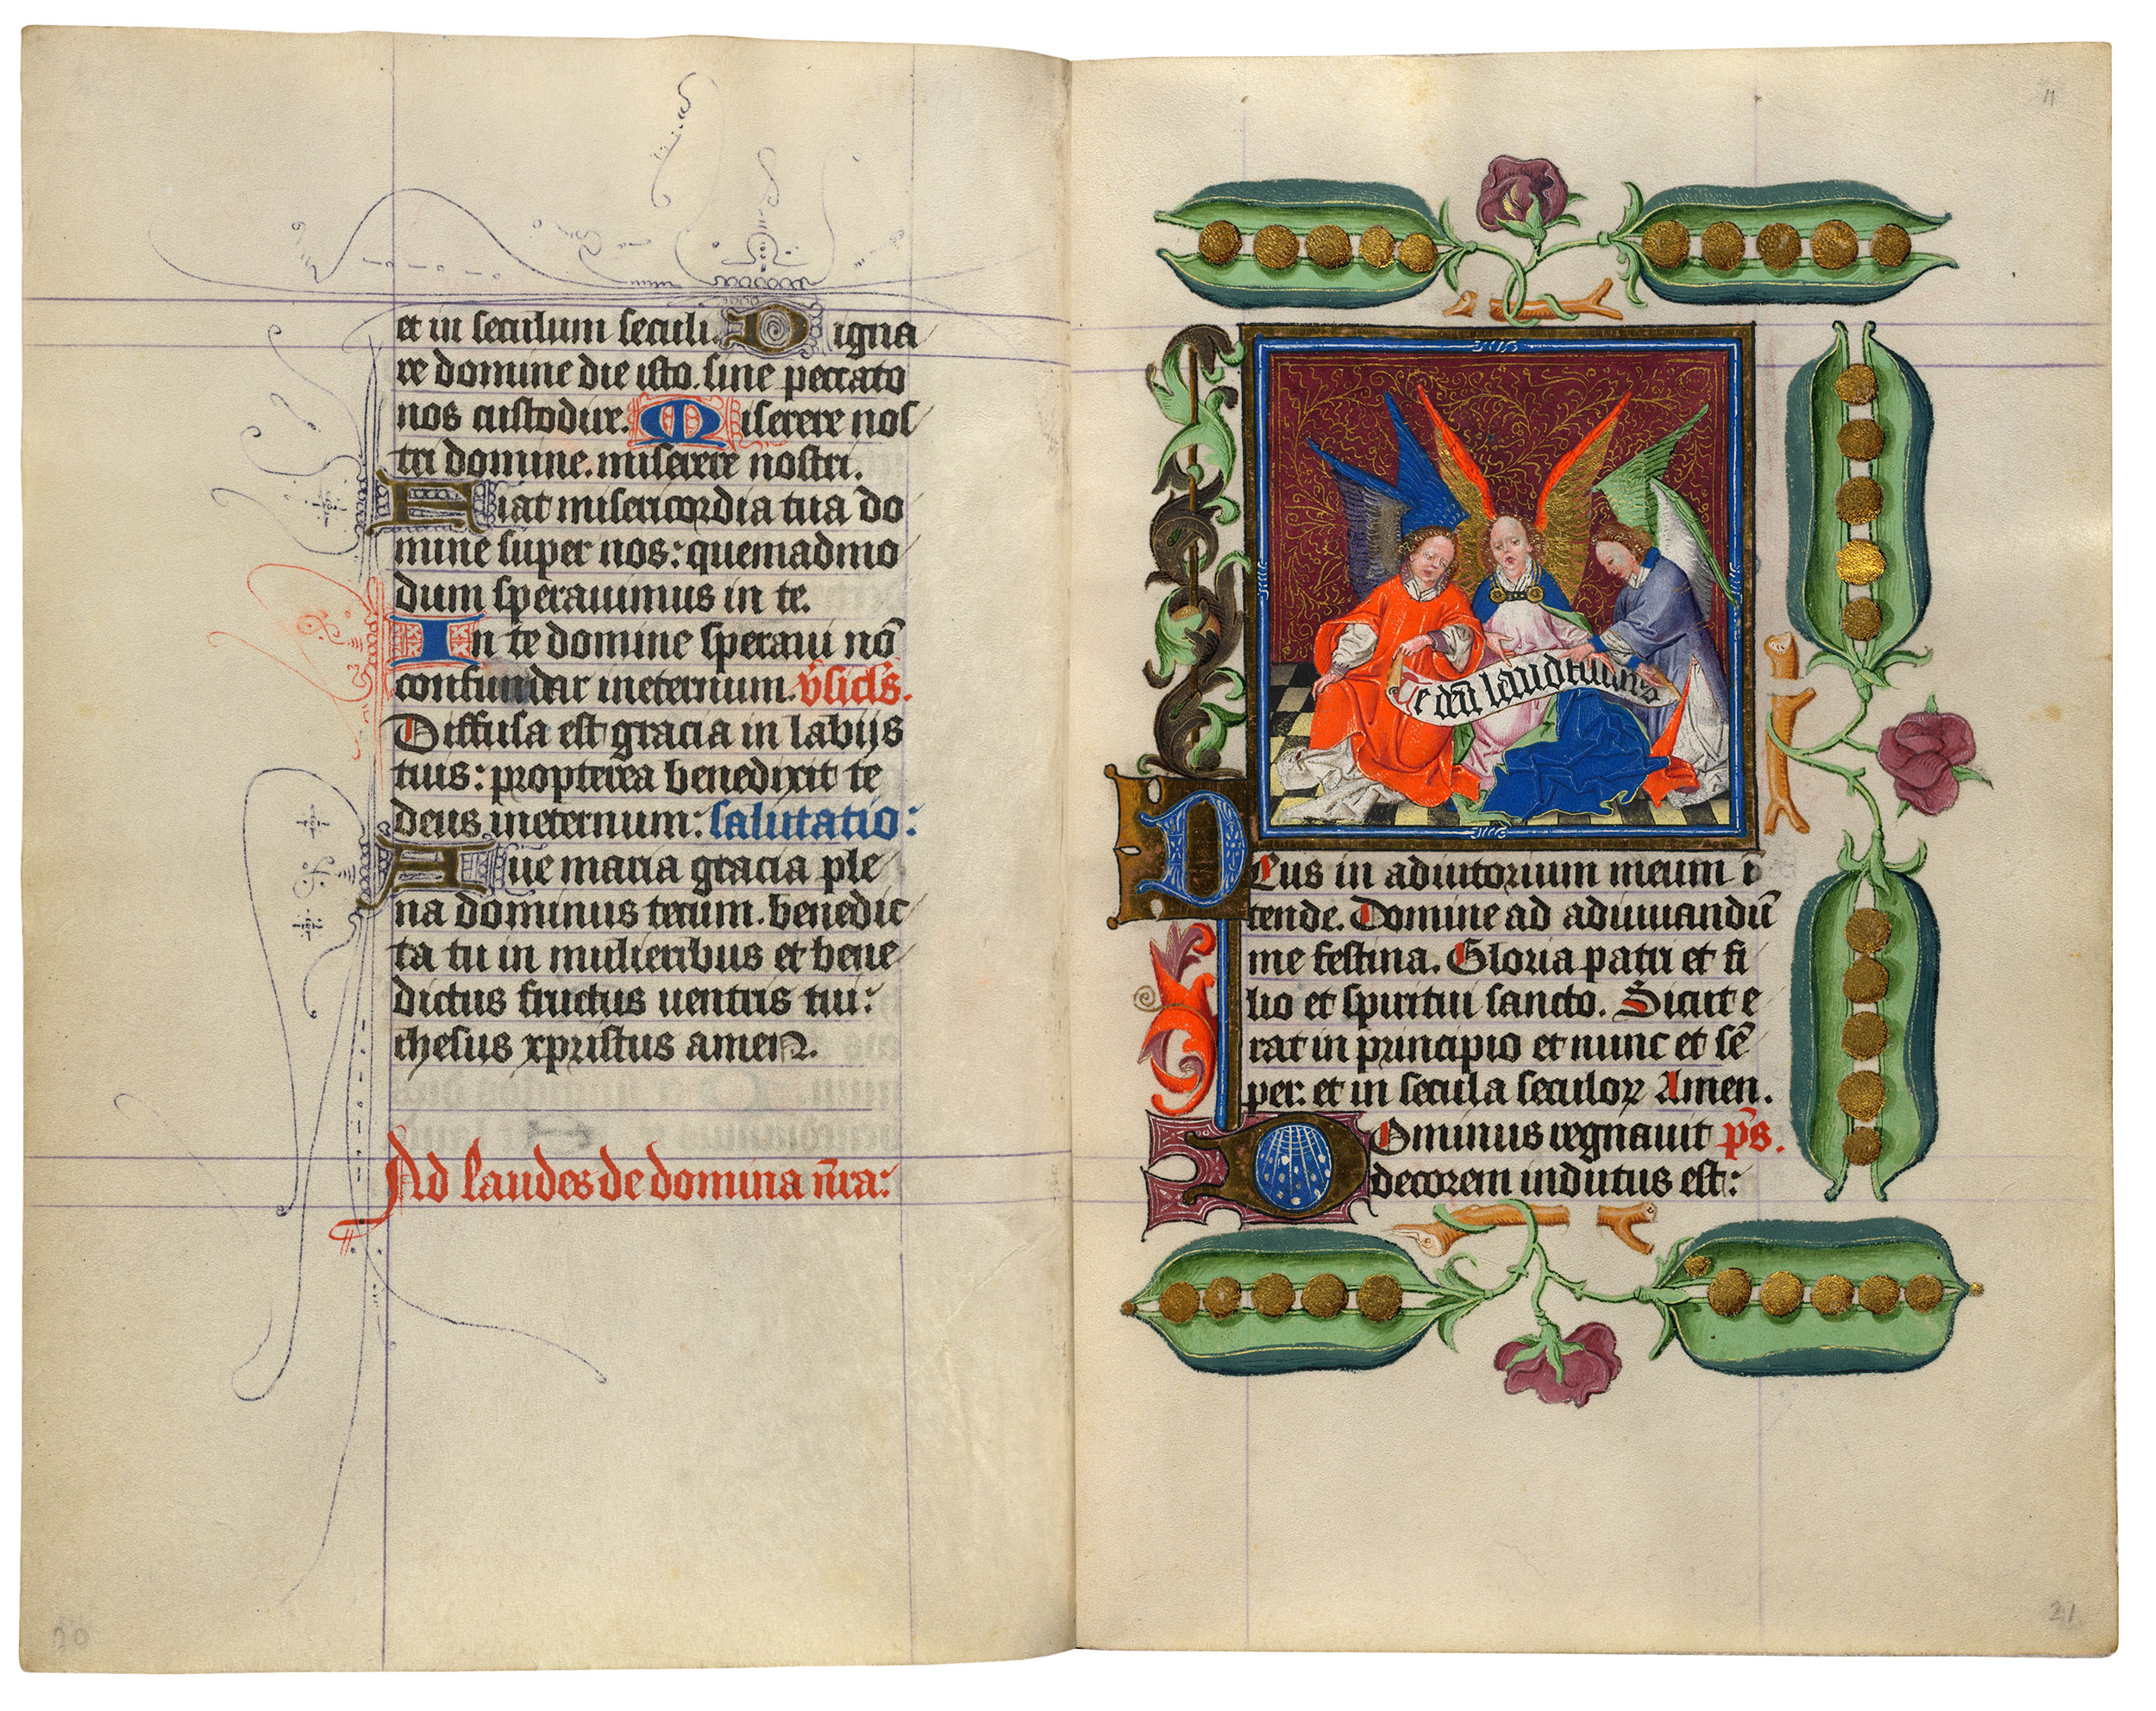 et in seculum seculi. Digna
re domine die isto. sine peccato
nos custodire. Miserere nos
tri domine. miserere nostri.
Fiat misericordia tua do
mine super nos: quemadmo
dum sperauimus in te.
In te domine speraui nō
confundar ineternum. v̄sicl's.
Diffusa est gracia in labijs
tuis: propterea benedixit te
deus ineternum: salutatio:
Aue maria gracia ple
na dominus tecum. benedic
ta tu in mulieribus et bene
dictus fructus uentris tui:
ihesus xpristus amen.
Ad laudes de domina nr̄a:
20
11
Te dm̄ laudamus
Deus in adiutorium meum ī
tende. Domine ad adiuuandū
me festina. Gloria patri et fi
lio et spiritui sancto. Sicut e
rat in principio et nunc et sē
per: et in secula seculoꝝ Amen.
Dominus regnauit p̄s.
decorem indutus est:
21